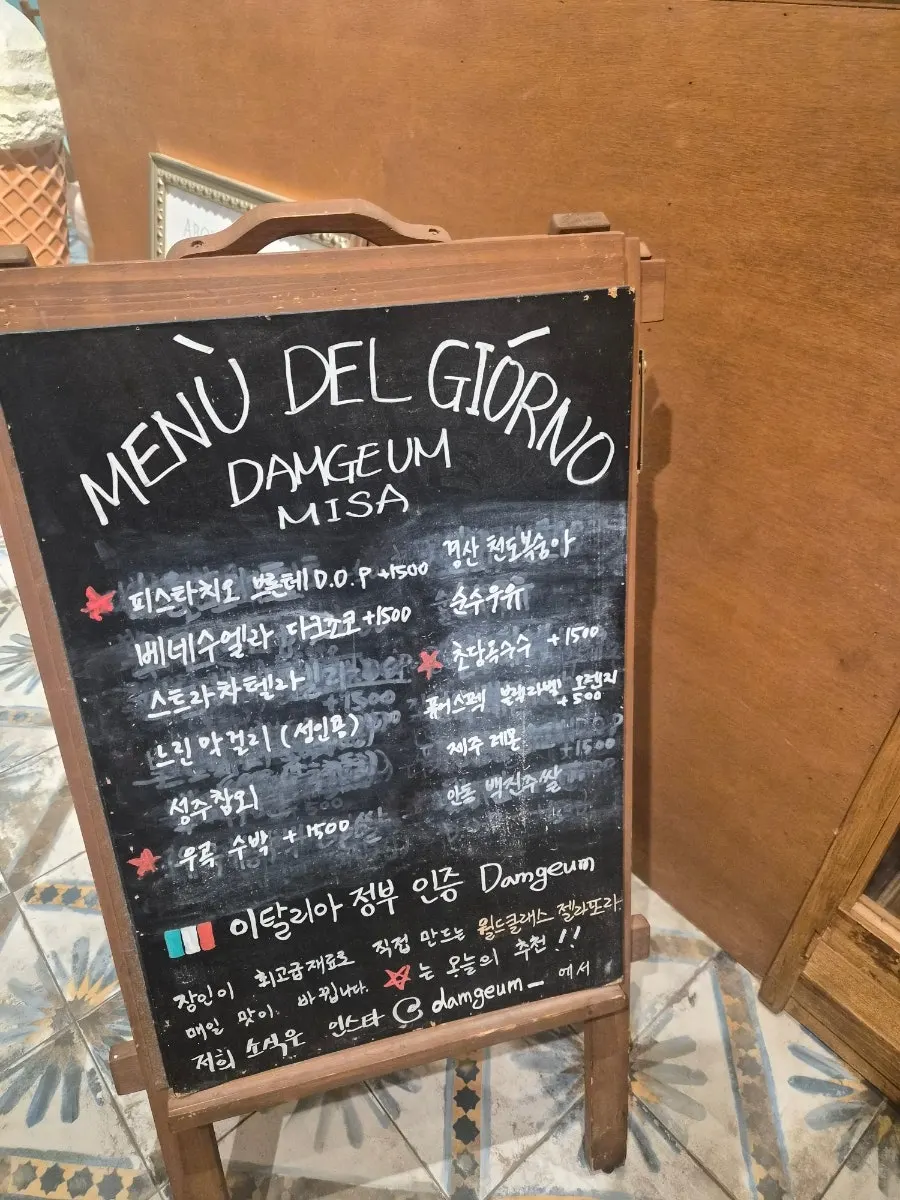 MENÙ DEL GIÓRNO
DAMGEUM
MISA
피스타치오 브론테 D.O.P +1500
베네수엘라 다크초코 +1500
스트라차텔라
느린 막걸리 (성인용)
성주참외
우곡 수박 +1500
경산 천도복숭아
순수우유
초당옥수수 +1500
퓨어스펙 블랙라벨 오렌지
+500
제주 레몬
안동 백진주쌀
이탈리아 정부 인증 Damgeum
장인이 최고급재료로 직접 만드는 월드클래스 젤라또라
매일 맛이 바뀝니다. ☆는 오늘의 추천!!
저희 소식은 인스타 @damgeum_ 에서